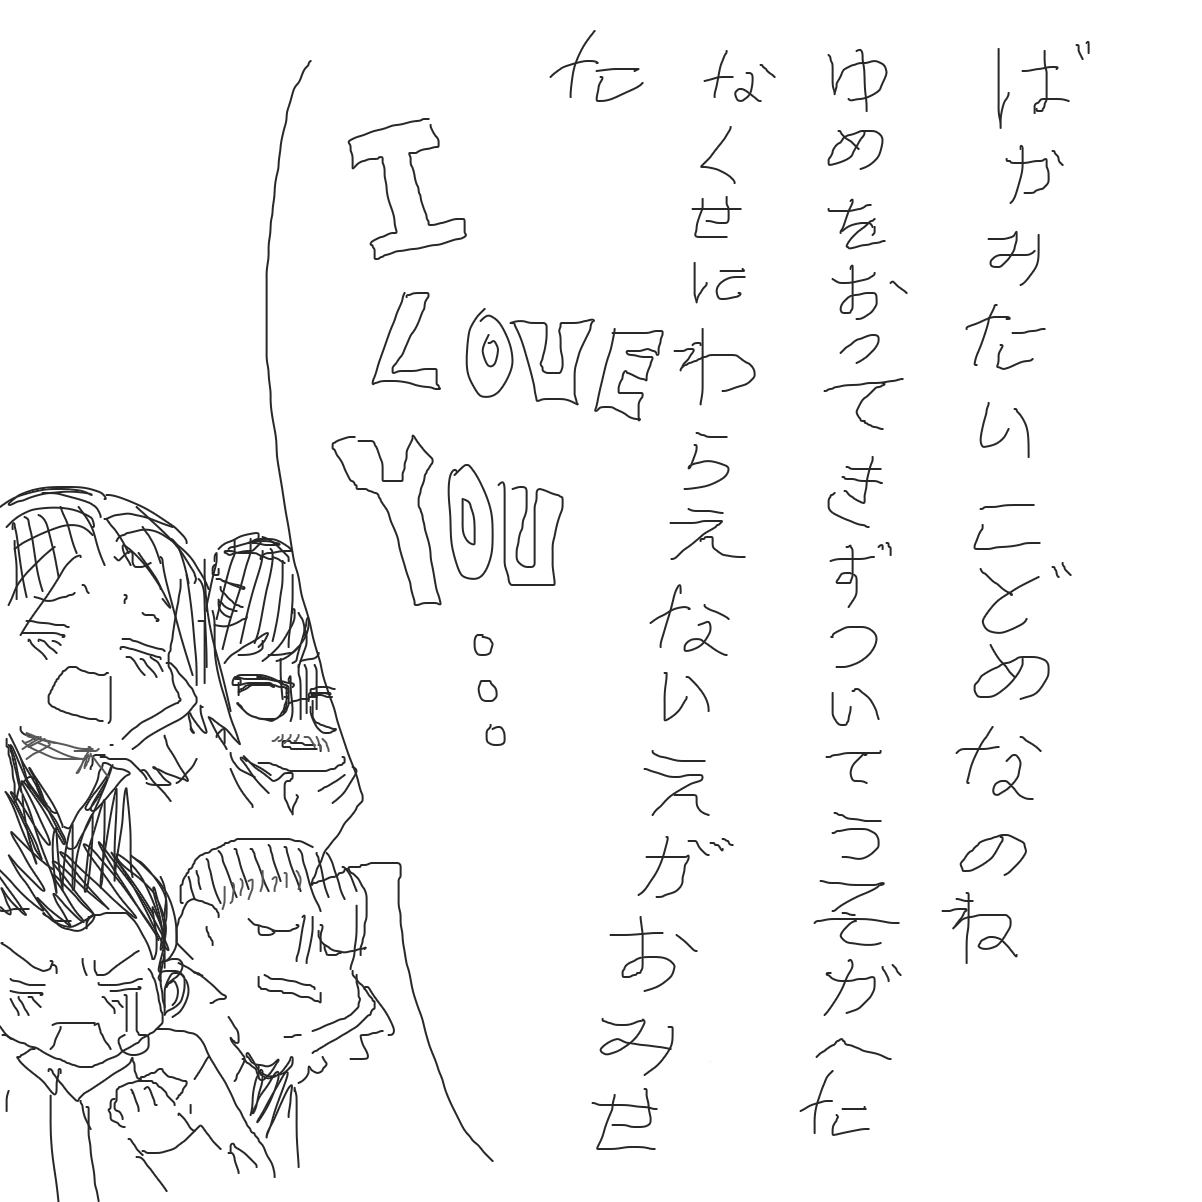 ばかみたいこどめなのね
ゆめをおってきずついてうそがへた
なくせにわらえないえがおみせ
た
I
LOVE
YOU
。。。